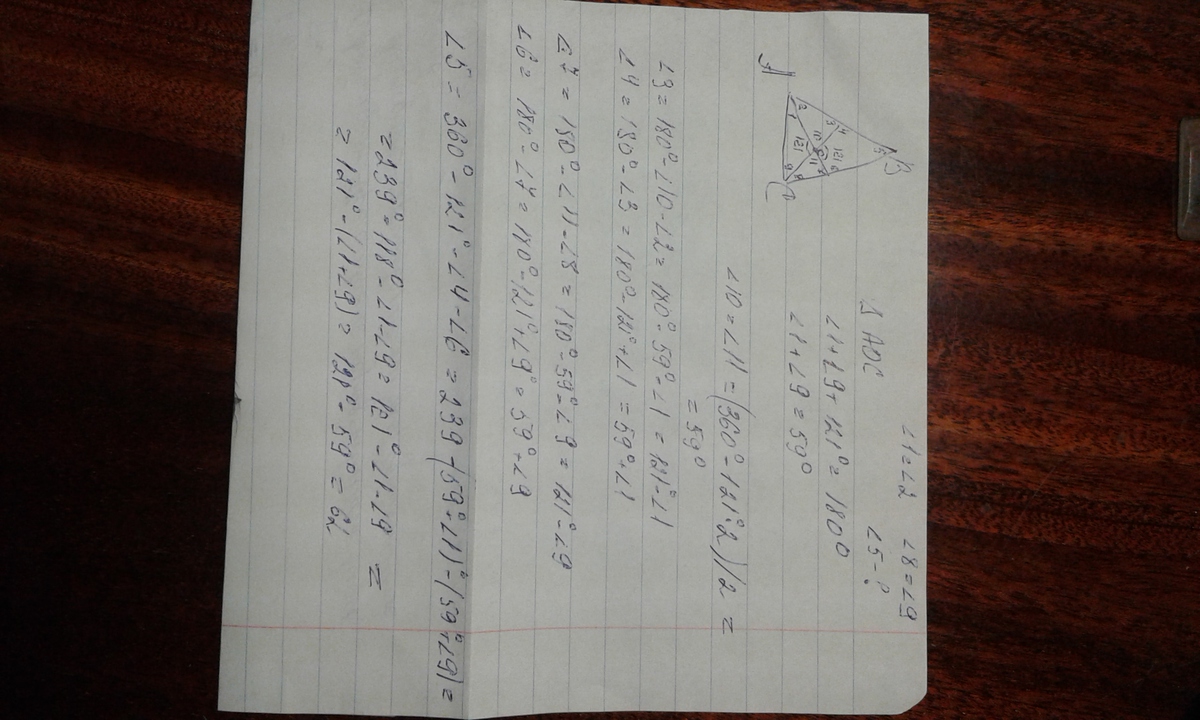 ∠1 = ∠2 ∠8 = ∠9
∠5 - ?
Δ AOC
∠1 + ∠9 + 121° = 180°
∠1 + ∠9 = 59°
B
5
4 121 6
3 10 O 7
2 121 11
1 9 8
A C
∠10 = ∠11 = (360° - 121°·2)/2 =
= 59°
∠3 = 180° - ∠10 - ∠2 = 180° - 59° - ∠1 = 121° - ∠1
∠4 = 180° - ∠3 = 180° - 121° + ∠1 = 59° + ∠1
∠7 = 180° - ∠11 - ∠8 = 180° - 59° - ∠9 = 121° - ∠9
∠6 = 180° - ∠7 = 180° - 121° + ∠9 = 59° + ∠9
∠5 = 360° - 121° - ∠4 - ∠6 = 239 - (59° + ∠1)° - (59° + ∠9) =
= 239° = 118° - ∠1 - ∠9 = 121° - ∠1 - ∠9 =
= 121° - (∠1 + ∠9) = 121° - 59° = 62